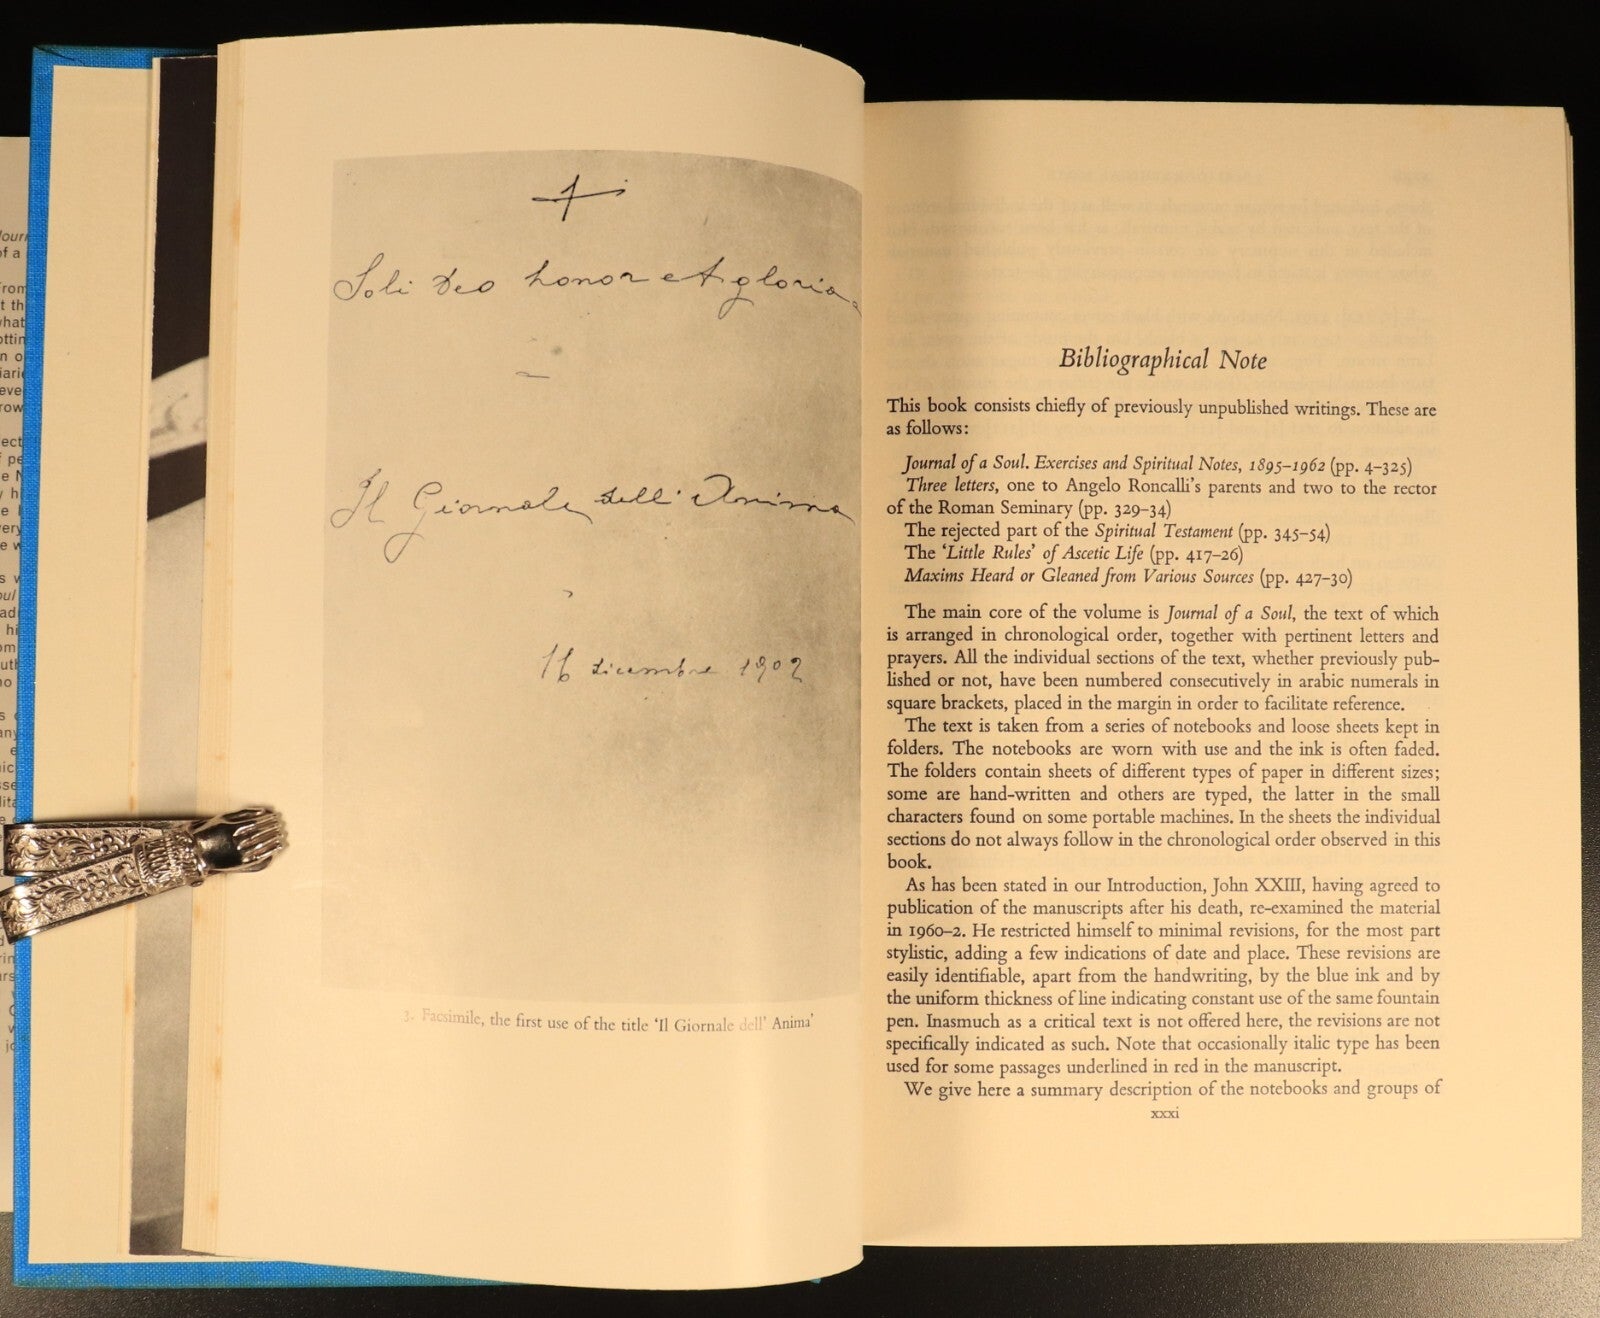 Soli Deo honor et gloria
Il Giornale dell' Anima
16 dicembre 1902
3. Facsimile, the first use of the title 'Il Giornale dell' Anima'
Bibliographical Note
This book consists chiefly of previously unpublished writings. These are
as follows:
Journal of a Soul. Exercises and Spiritual Notes, 1895–1962 (pp. 4–325)
Three letters, one to Angelo Roncalli's parents and two to the rector
of the Roman Seminary (pp. 329–34)
The rejected part of the Spiritual Testament (pp. 345–54)
The 'Little Rules' of Ascetic Life (pp. 417–26)
Maxims Heard or Gleaned from Various Sources (pp. 427–30)
The main core of the volume is Journal of a Soul, the text of which
is arranged in chronological order, together with pertinent letters and
prayers. All the individual sections of the text, whether previously pub-
lished or not, have been numbered consecutively in arabic numerals in
square brackets, placed in the margin in order to facilitate reference.
The text is taken from a series of notebooks and loose sheets kept in
folders. The notebooks are worn with use and the ink is often faded.
The folders contain sheets of different types of paper in different sizes;
some are hand-written and others are typed, the latter in the small
characters found on some portable machines. In the sheets the individual
sections do not always follow in the chronological order observed in this
book.
As has been stated in our Introduction, John XXIII, having agreed to
publication of the manuscripts after his death, re-examined the material
in 1960–2. He restricted himself to minimal revisions, for the most part
stylistic, adding a few indications of date and place. These revisions are
easily identifiable, apart from the handwriting, by the blue ink and by
the uniform thickness of line indicating constant use of the same fountain
pen. Inasmuch as a critical text is not offered here, the revisions are not
specifically indicated as such. Note that occasionally italic type has been
used for some passages underlined in red in the manuscript.
We give here a summary description of the notebooks and groups of
xxxi